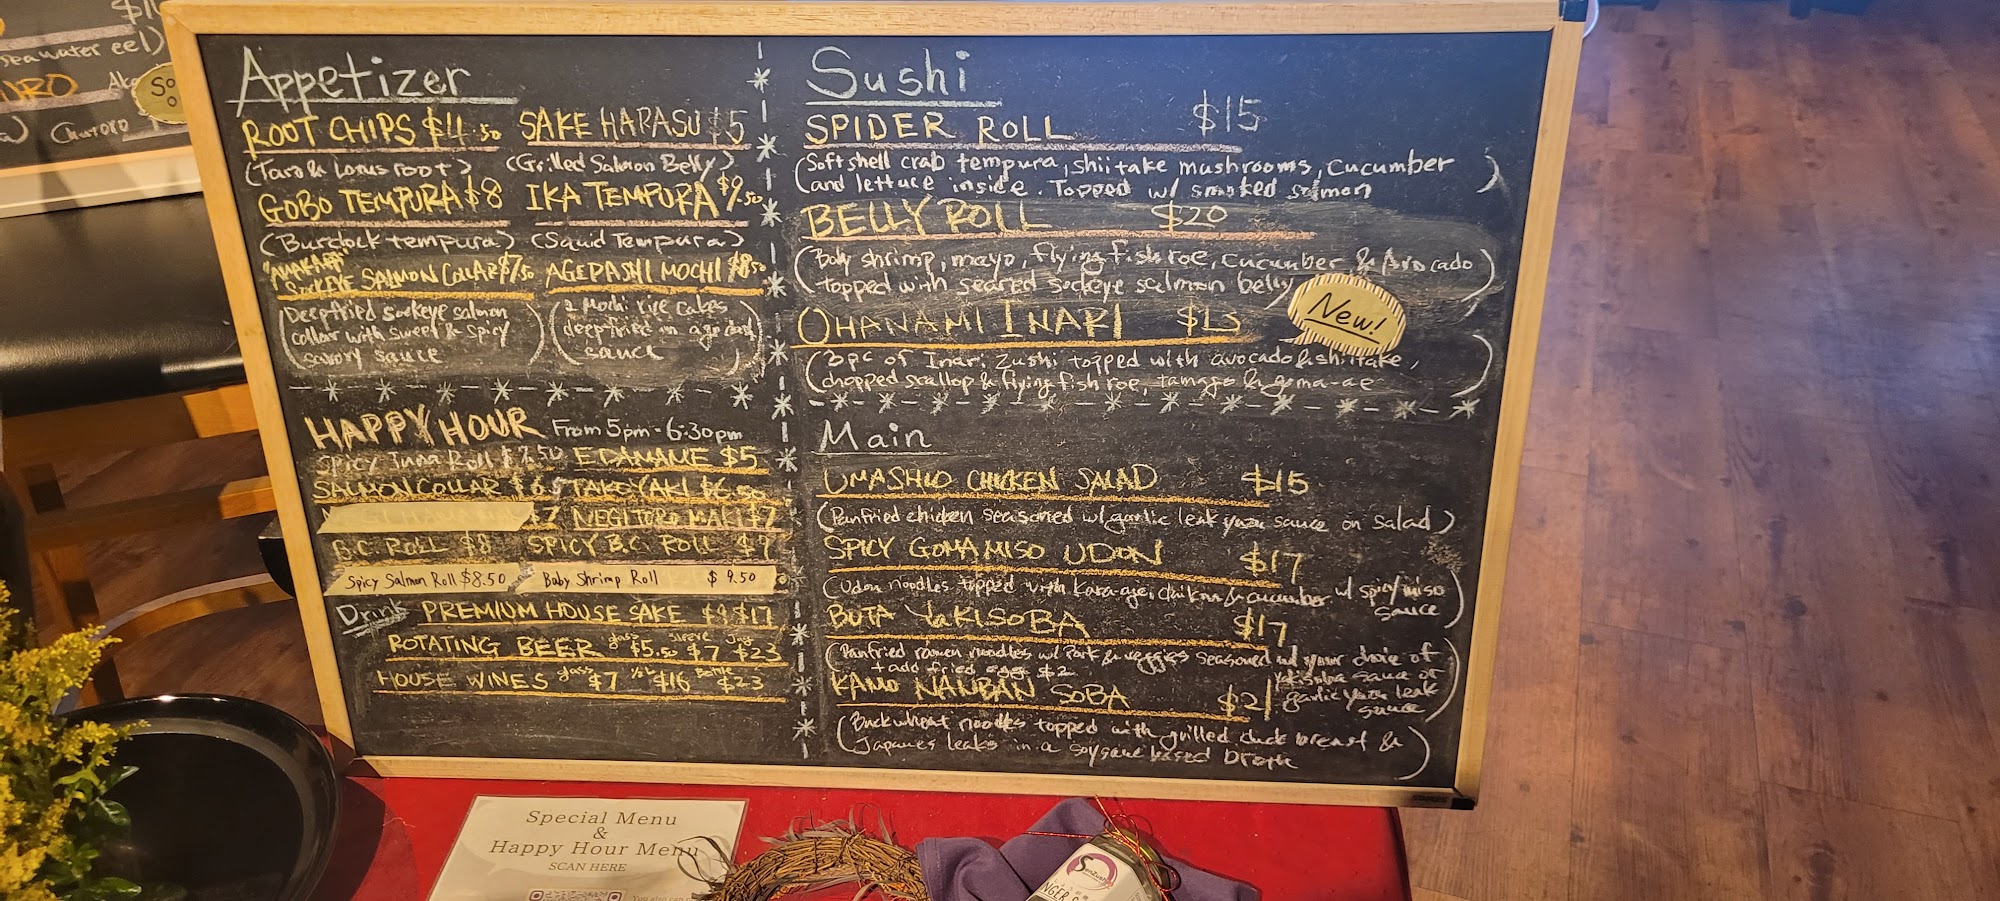 seawater eel)
Appetizer
ROOT CHIPS $4.50 SAKE HARASU $5
(Taro & Lotus root) (Grilled Salmon Belly)
GOBO TEMPURA $8 IKA TEMPURA $9.50
(Burdock tempura) (Squid Tempura)
SOCKEYE SALMON COLLAR $7.50 AGEDASHI MOCHI $8.50
(Deepfried sockeye salmon
collar with sweet & spicy
savory sauce)
(2 Mochi rice cakes
deepfried in agedashi
sauce)
HAPPY HOUR From 5pm - 6:30pm
SPICY Tuna Roll $7.50 EDAMAME $5
SALMON COLLAR $6.5 TAKOYAKI $6.50
$7 NEGITORO MAKI $7
B.C. ROLL $8 SPICY B.C. ROLL $9
Spicy Salmon Roll $8.50 Baby Shrimp Roll $9.50
Drink PREMIUM HOUSE SAKE $9 $17
ROTATING BEER glass $5.50 sleeve $7 Jug $23
HOUSE WINES glass $7 1/2L $16 Bottle $23
Sushi
SPIDER ROLL $15
(Softshell crab tempura, shiitake mushrooms, cucumber
and lettuce inside. Topped w/ smoked salmon)
BELLY ROLL $20
(Baby shrimp, mayo, flying fish roe, cucumber & Avocado
topped with seared sockeye salmon belly)
OHANAMI INARI
New!
(3pc of Inari Zushi topped with avocado & shiitake,
chopped scallop & flying fish roe, tamago & goma-ae)
Main
UMASHIO CHICKEN SALAD $15
(Panfried chicken seasoned w/ garlic leak yuzu sauce on salad)
SPICY GOMA MISO UDON $17
(Udon noodles topped with Kara-age, chikuwa & cucumber w/ spicy miso
sauce)
BUTA YAKISOBA $17
(Panfried ramen noodles w/ Pork & veggies seasoned w/ your choice of
yakisoba sauce or
garlic yuzu leak
sauce)
+ add fried egg $2
KAMO NANBAN SOBA $21
(Buckwheat noodles topped with grilled duck breast &
Japanes leaks in a soysauce based broth)
Special Menu
&
Happy Hour Menu
SCAN HERE